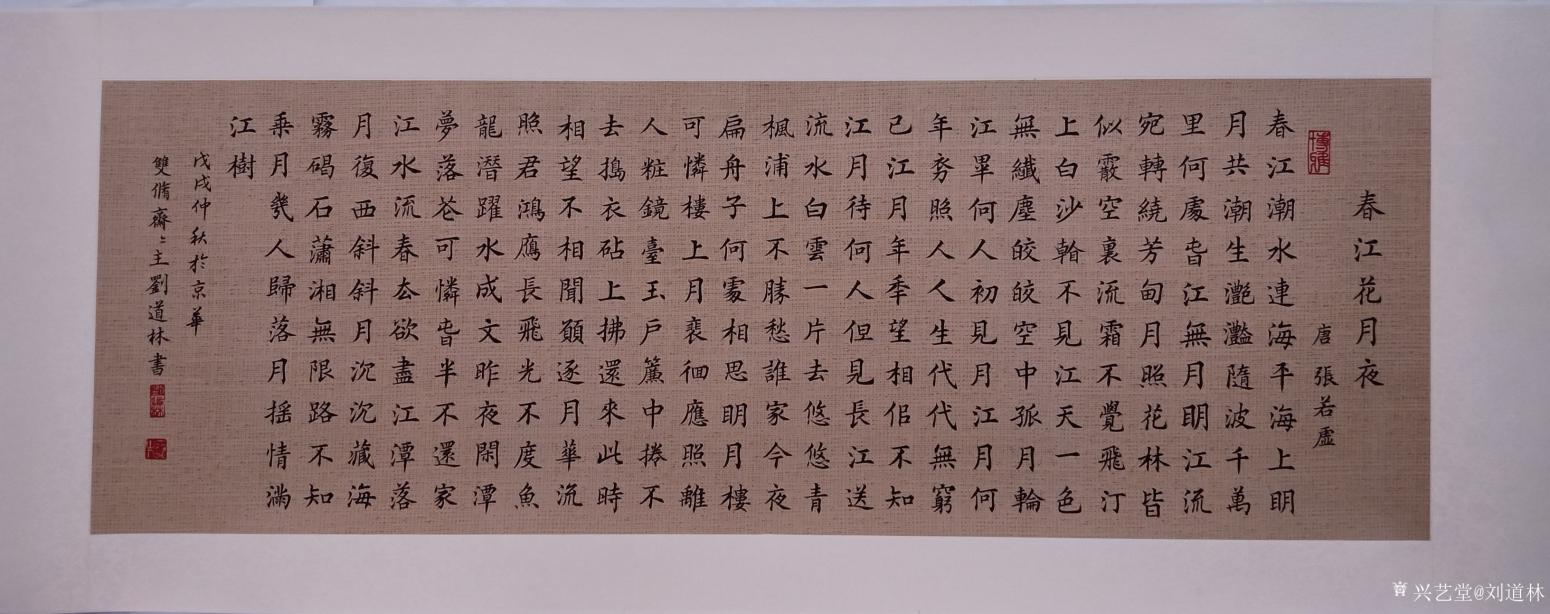 博雅
春江花月夜
唐張若虛
春江潮水連海平海上明
月共潮生灔灩隨波千萬
里何處旹江無月明江流
宛轉繞芳甸月照花林皆
似霰空裏流霜不覺飛汀
上白沙翰不見江天一色
無纖塵皎皎空中孤月輪
江畢何人初見月江月何
年夯照人人生代代無窮
已江月年秊望相佀不知
江月待何人但見長江送
流水白雲一片去悠悠青
楓浦上不勝愁誰家今夜
扁舟子何處相思明月樓
可憐樓上月裵徊應照離
人粧鏡臺玉戶簾中捲不
去搗衣砧上拂還來此時
相望不相聞願逐月華流
照君鴻鴈長飛光不度魚
龍潛躍水成文昨夜閑潭
夢落芲可憐旹半不還家
江水流春去欲盡江潭落
月復西斜斜月沉沉藏海
霧碣石瀟湘無限路不知
乘月幾人歸落月搖情滿
江樹
戊戌仲秋於京華
雙脩齋〻主劉道林書
兴艺堂@刘道林